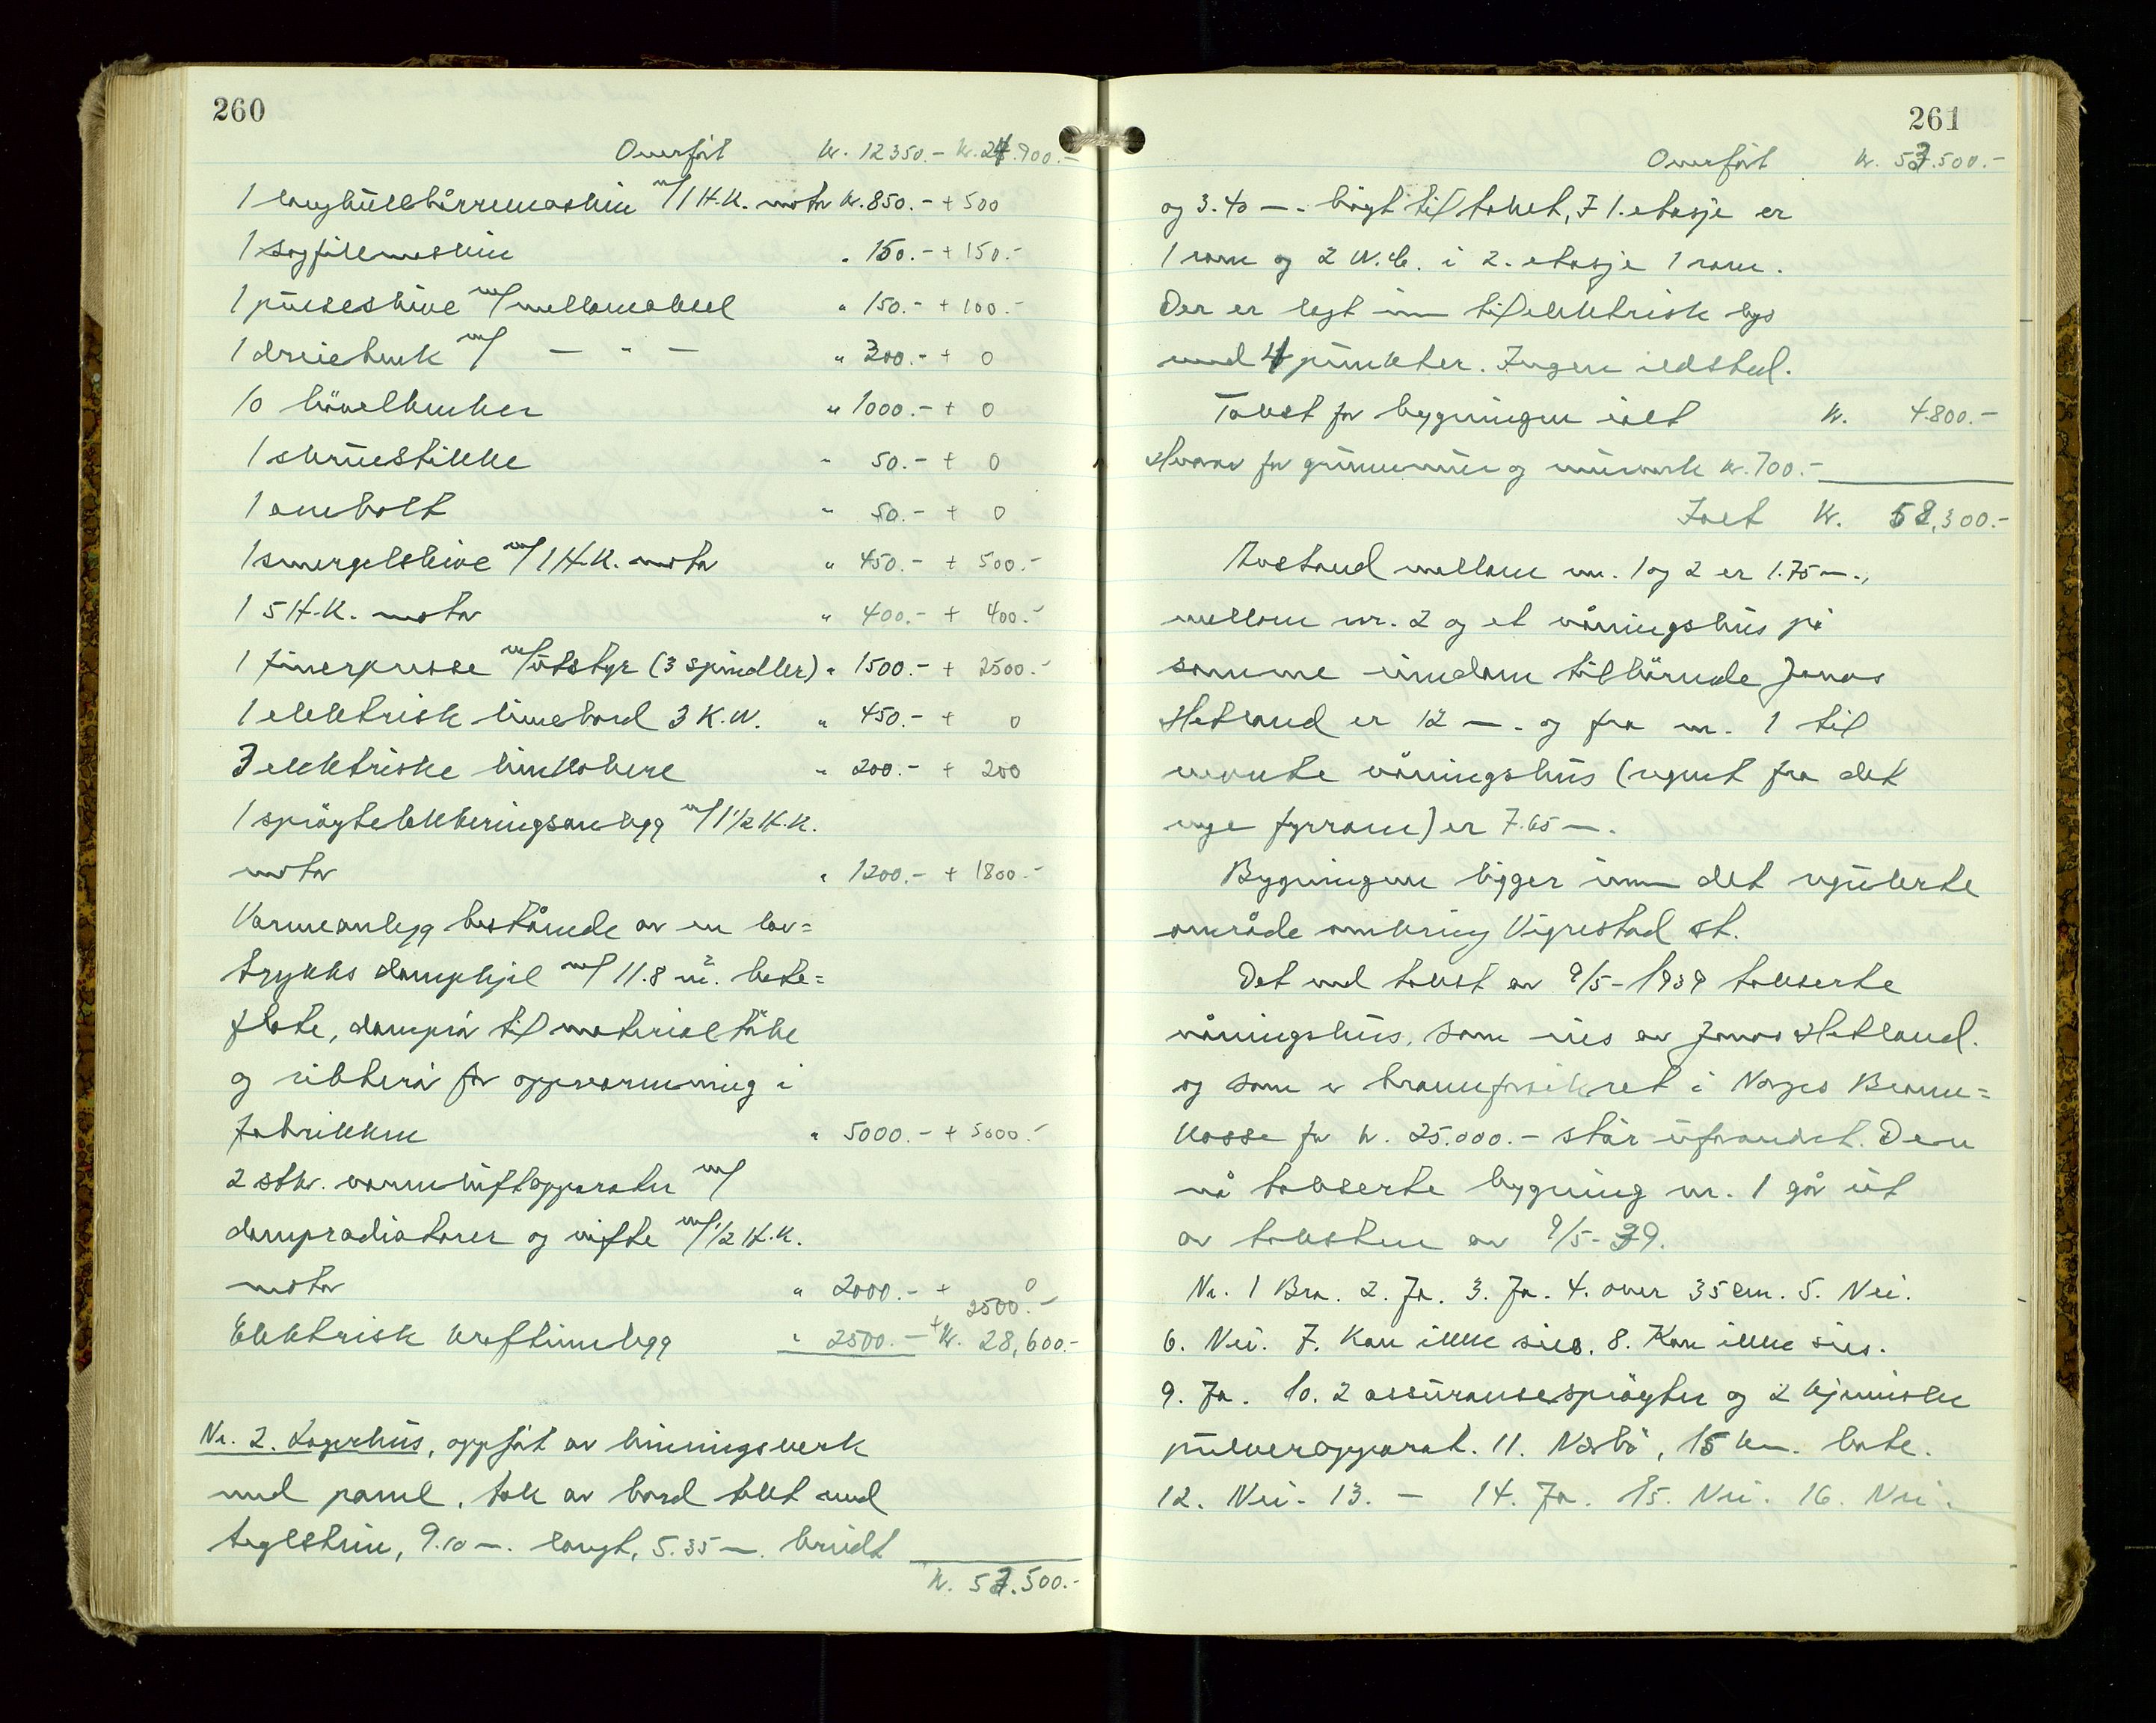 260
Overført Kr. 12350.- Kr. 24.900.-
1 langhullbårremaskin m/1 H.K. motor Kr. 850.- + 500
1 sagfilemaskin " 150.- + 150.-
1 pusseskive m/mellomaksel " 150.- + 100.-
1 dreiebenk m/ — " — " 300.- + 0
10 hövelbenker " 1000.- + 0
1 skruestikke " 50.- + 0
1 ambolt " 50.- + 0
1 smergelskive m/1 H.K. motor " 450.- + 500.-
1 5 H.K. motor " 400.- + 400.-
1 finerpresse m/utstyr (3 spindler) " 1500.- + 2500.-
1 elektrisk limebord 3 K.W. " 450.- + 0
3 elektriske limkokere " 200.- + 200
1 spröytelakkeringsanlegg m/1 1/2 H.K.
motor " 1200.- + 1800.-
Varmeanlegg bestående av en lav=
trykks dampkjel m/ 11.8 m². hete=
flate, damprör til materialtörke
og ribberör for oppvarmning i
fabrikken " 5000.- + 5000.-
2 stk. varmluftapparater m/
dampradiatorer og vifte m/1/2 H.K.
motor " 2000.- + 0
+ 2500.-
Elektrisk kraftinnlegg " 2500.- Kr. 28,600.-
Nr. 2. Lagerhus, oppfört av binningsverk
med panel, tak av bord tekt med
teglstein, 9.10 m. langt, 5.35 m. bredt
Kr. 53.500.-
261
Overført Kr. 53.500.-
og 3.40 m. högt til taket, I 1. etasje er
1 rom og 2 W.C. i 2. etasje 1 rom.
Der er lagt inn til elektrisk lys
med 4 punkter. Ingen ildsted.
Takst for bygningen ialt Kr. 4.800.-
Herav for grunnmur og murverk Kr. 700.-
Ialt Kr. 58,300.-
Avstand mellom nr. 1 og 2 er 1.75 m.,
mellom nr. 2 og et våningshus på
samme eiendom tilhörende Jonas
Hetland er 12 m. og fra nr. 1 til
nevnte våningshus (regnet fra det
nye fyrrom) er 7.65 m.
Bygningene ligger innen det regulerte
område omkring Vigrestad st.
Det ved takst av 9/5-1939 takserte
våningshus, som eies av Jonas Hetland.
og som er brannforsikret i Norges Brann=
kasse for kr. 25.000.- står uforandret. Den
nå takserte bygning nr. 1 går ut
av taksten av 9/5-39.
Nr. 1 Bra. 2. Ja. 3. Ja. 4. over 35 cm. 5. Nei.
6. Nei. 7. Kan ikke sies. 8. Kan ikke sies.
9. Ja. 10. 2 assuransespröyter og 2 kjemiske
pulverapparat. 11. Nærbö, 15 km. borte.
12. Nei. 13. — 14. Ja. 15. Nei. 16. Nei.